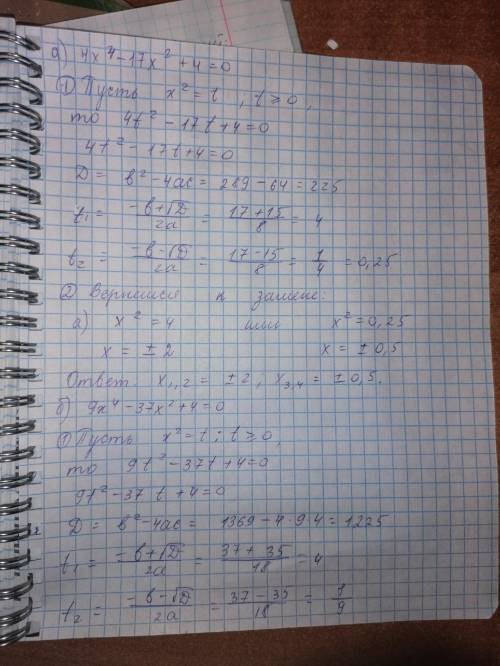 а) 4x⁴-17x²+4=0
① Пусть x²=t ; t≥0,
то 4t²-17t+4=0
4t²-17t+4=0
D = b²-4ac = 289-64=225
t₁ = (-b+√D)/2a = (17+15)/8 = 4
t₂ = (-b-√D)/2a = (17-15)/8 = 1/4 = 0,25
② Вернемся к замене:
а) x²=4 или x²=0,25
x = ±2 x = ±0,5
Ответ: x₁,₂ = ±2; x₃,₄ = ±0,5.
б) 9x⁴-37x²+4=0
① Пусть x²=t; t≥0,
то 9t²-37t+4=0
9t²-37t+4=0
D = b²-4ac = 1369-4·9·4=1225
t₁ = (-b+√D)/2a = (37+35)/18 = 4
t₂ = (-b-√D)/2a = (37-35)/18 = 1/9